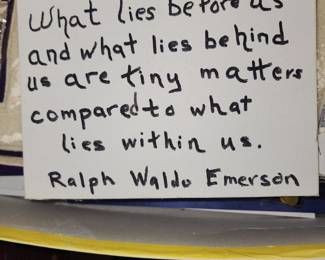 What lies before us
and what lies behind
us are tiny matters
compared to what
lies within us.
Ralph Waldo Emerson